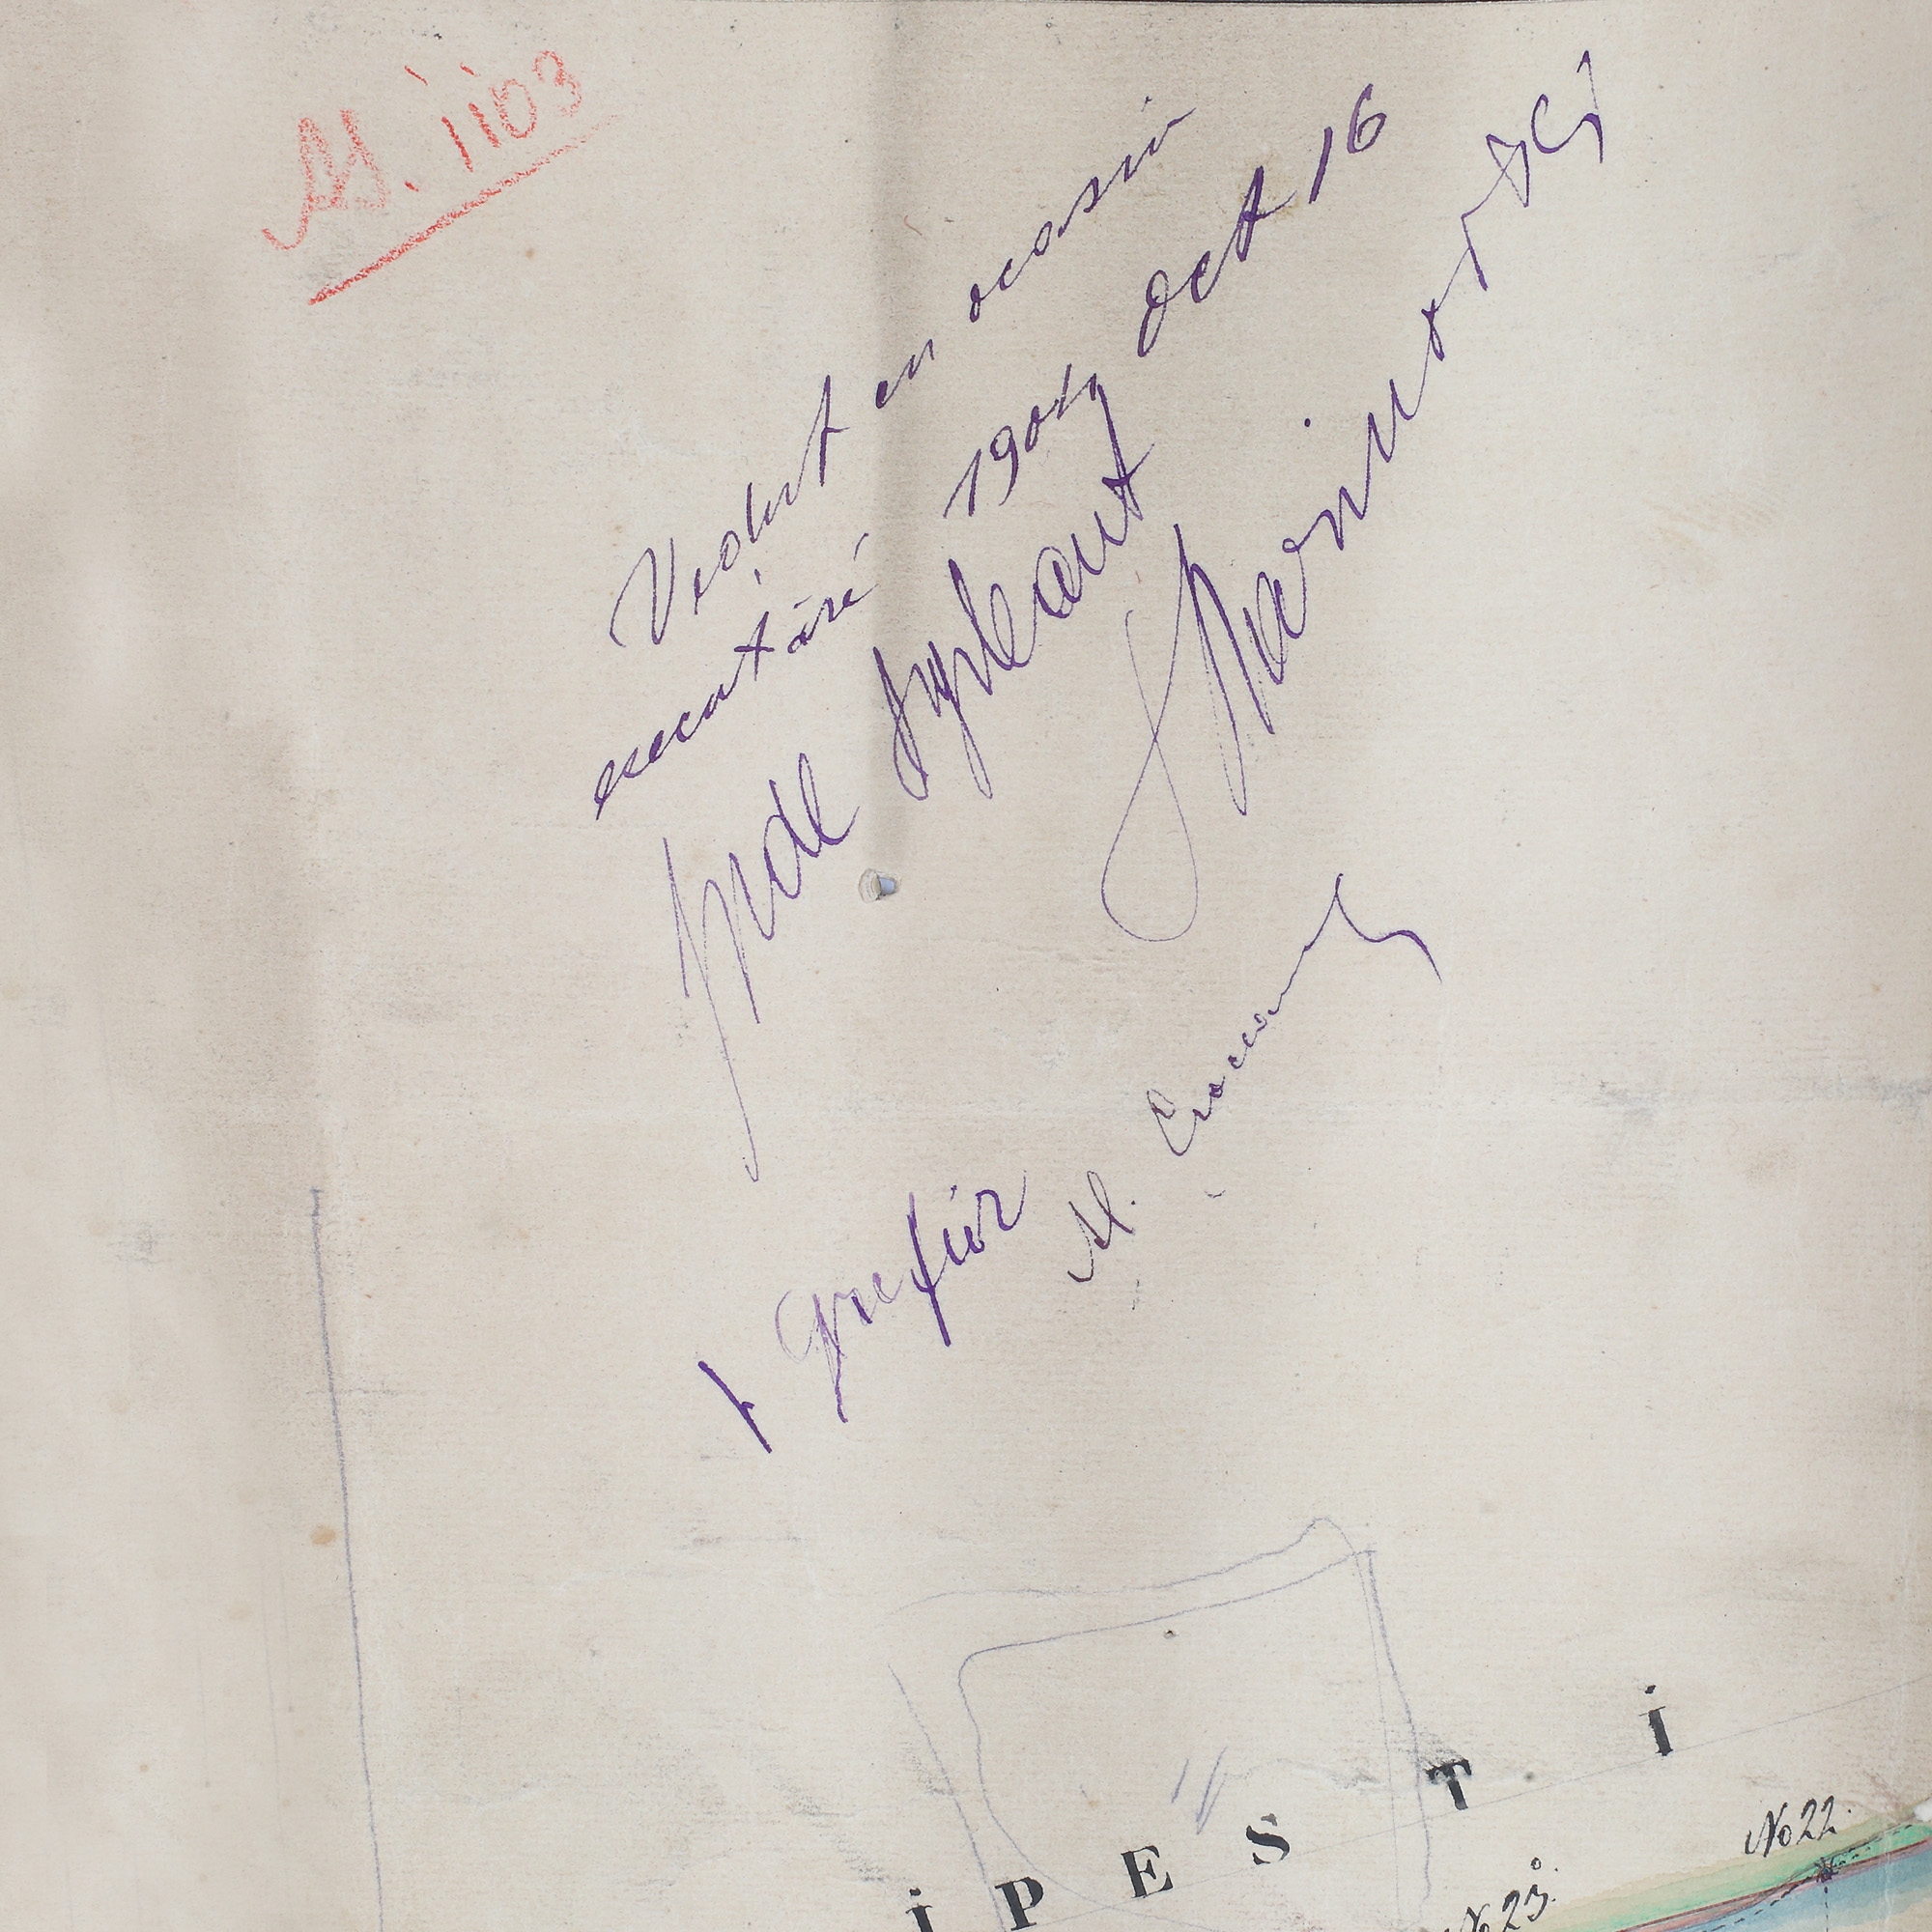 M. 1103
Vedut cu ocasia
executărei 1904 Oct 16
Jude Supleant
Grefier M.
I P E S T I
No 22.
No 23.